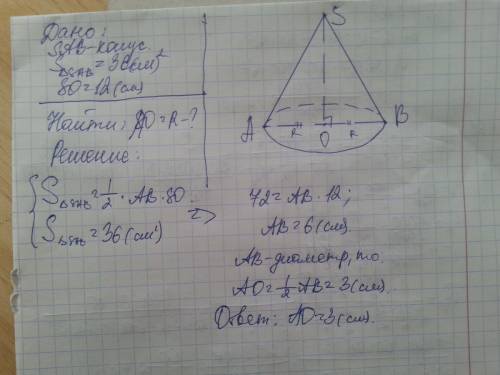 Дано:
SAB-конус.
S△SAB=36(см)²
SO=12(см)
Найти: AO=R-?
Решение:
S△SAB=1/2·AB·SO.
S△SAB=36(см²)
=>
72=AB·12;
AB=6(см).
AB-диаметр, то
AO=1/2AB=3(см).
Ответ: AO=3(см).
S
A
R
O
R
B